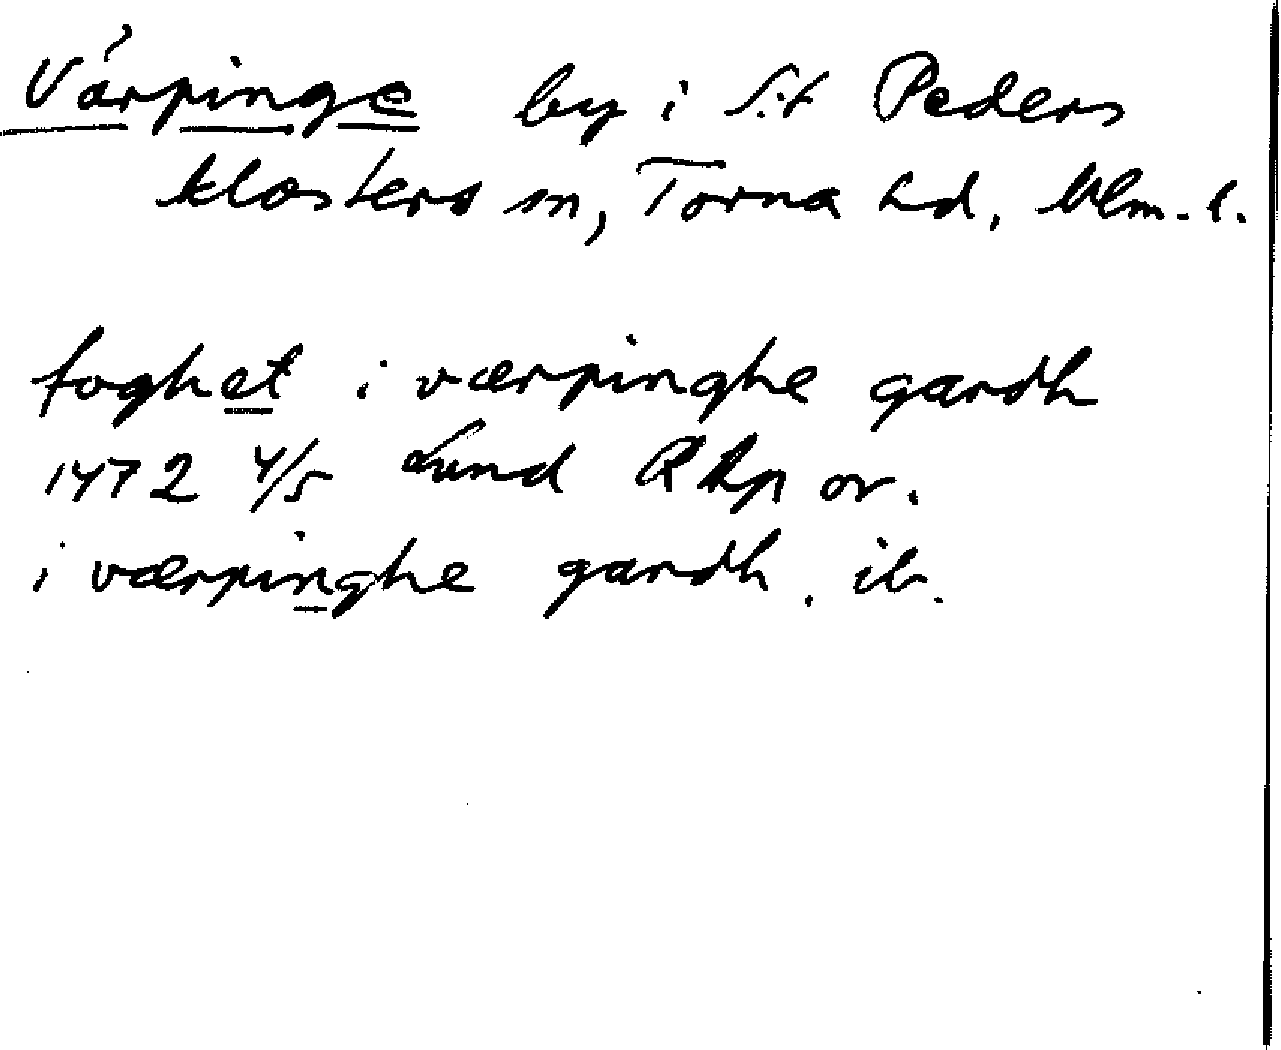 Värpinge by i S:t Peders
klosters sn, Torna hd, Mlm. l.
foghet i værpinghe gardh
1472 4/5 Lund RAp or.
i værpinghe gardh. ib.